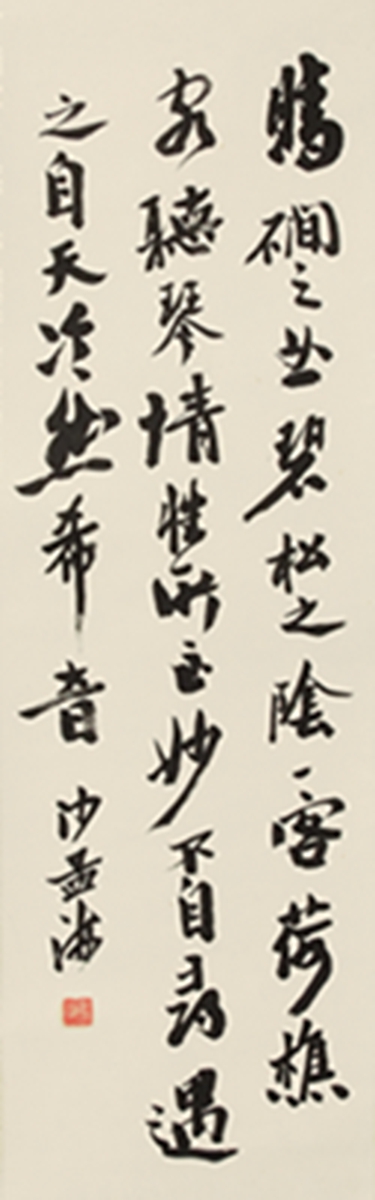 晴磵之曲碧松之陰一客荷樵
客聽琴情性所至妙不自尋遇
之自天冷然希音 沙孟海